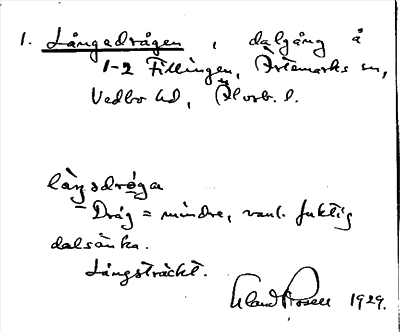 1. Långedrågen, dalgång å
1-2 Fillingen, Ärtemarks sn,
Vedbo hd, Älvsb. l.
låŋsdrøga
- Dråg = mindre, vanl. fuktig
dalsänka.
Långsträckt.
1929.